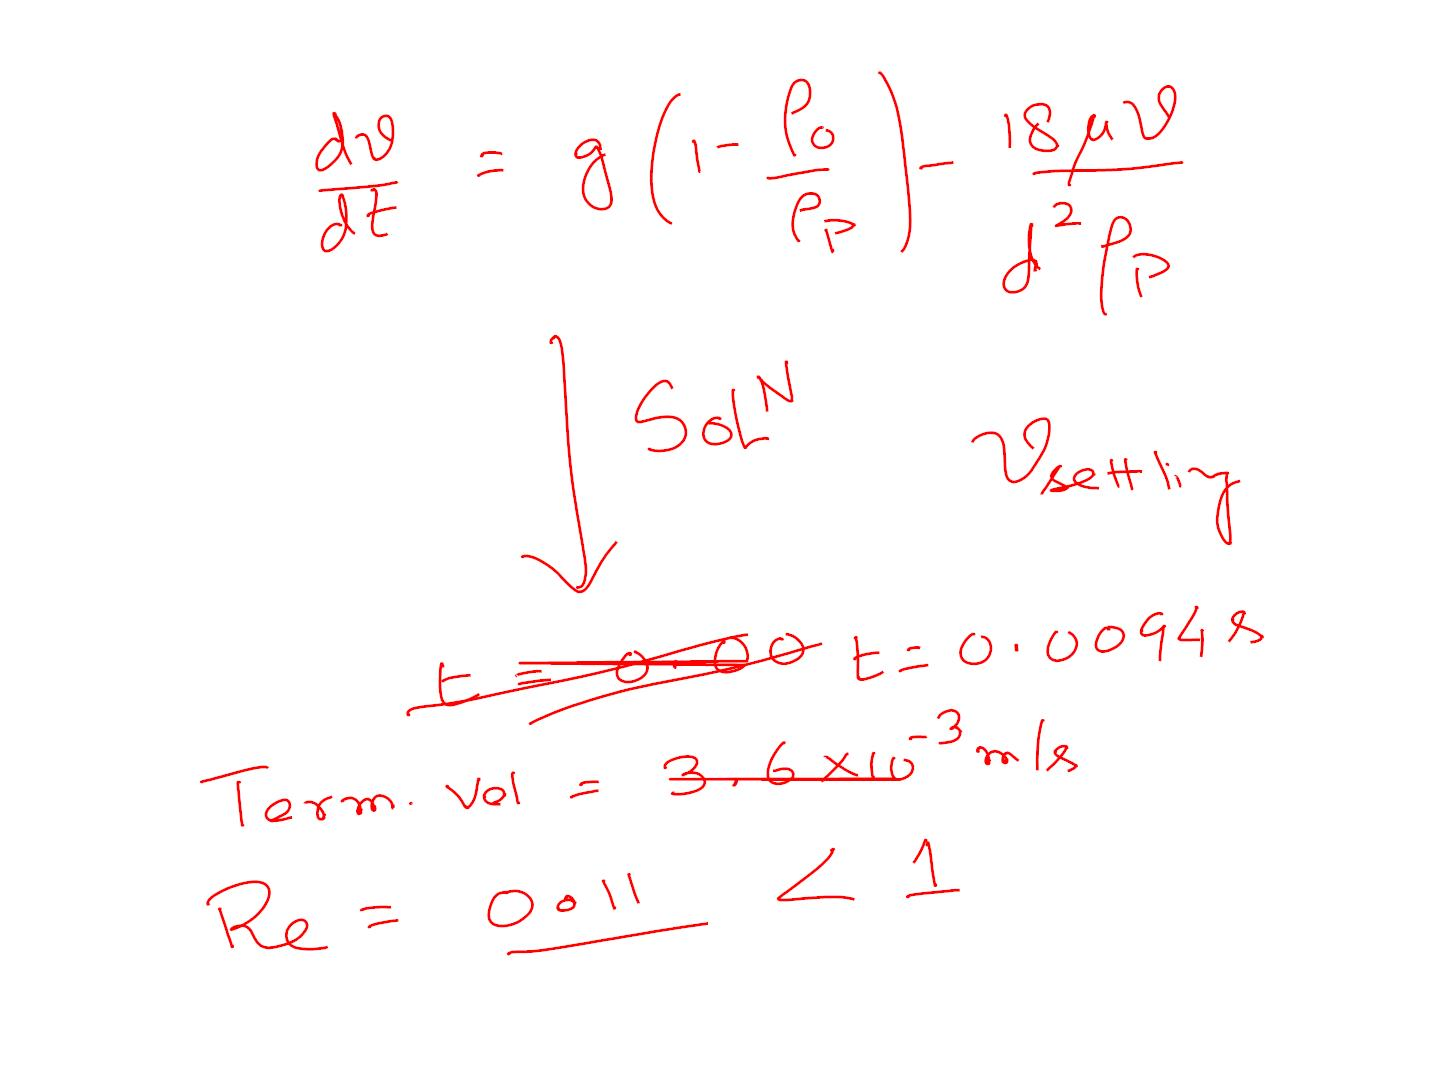 dv/dt = g(1 - ρ₀/ρ_P) - 18μv/d²ρ_P
SOLᴺ
v_settling
t = 0.00 t = 0.0094 s
Term. vel = 3.6 × 10⁻³ m/s
Re = 0.11 < 1